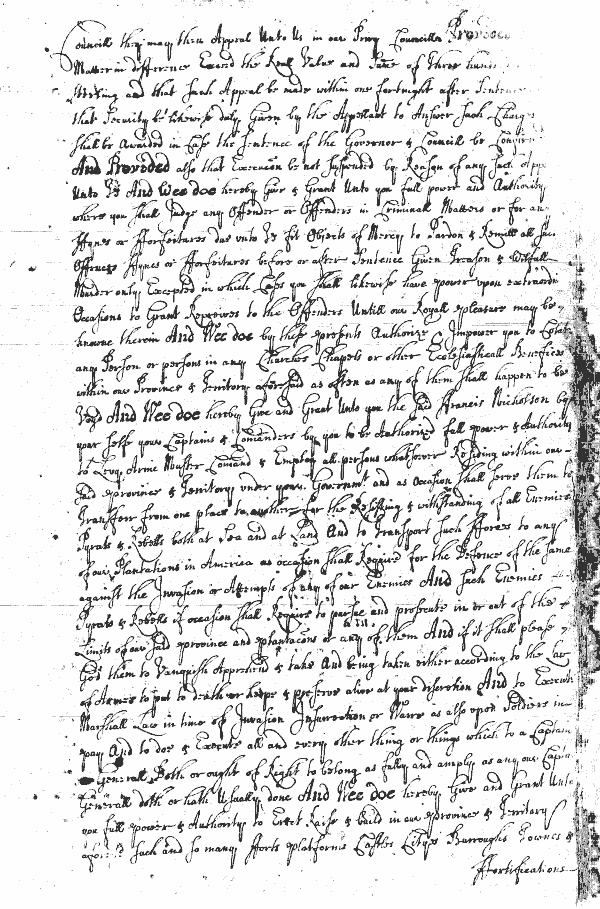 Councill they may then Appeal Unto Us in our Privy Councill Provided
Matter in difference Exceed the Real Value and Sume of three hund
Sterling and that Such Appeal be made within one fortnight after Sentence
that Security be likewise duly Given by the Appellant to Answer Such Charges
Shall be Awarded in Case the Sentence of the Governor & Councill be
And Provided also that Execucon be not Suspended by Reason of any Such Appe
Unto Us And Wee doe hereby Give & Grant Unto you full power and Authority
where you Shall Judge any Offender or Offenders in Criminall Matters or for any
ffynes or fforfeitures due unto Us fit Objects of Mercy to Pardon & Remitt all Such
Offences ffynes or fforfeitures before or after Sentence Given Treason & Wilfull
Murder only Excepted in which Cases you Shall likewise have power upon extraordin
Occasions to Grant Reprieves to the Offenders Untill our Royall pleasure may be
knowne therein And Wee doe by these presents Authorize & Impower you to Collate
any Person or persons in any Churches Chapels or other Ecclesiasticall Benefices
within our Province & Territory aforesaid as often as any of them Shall happen to be
Voyd And Wee doe hereby Give and Grant Unto you the Said Francis Nicholson by
your Selfe your Captains & Comanders by you to be Authorized full power & Authority
to Levy Arme Muster Comand & Employ all persons whatsoever Residing within our
Said province & Territory under your Governmt and as occasion Shall Serve them to
Transferr from one place to another for the Resisting & withstanding of all Enemies
Pyrats & Rebells both at Sea and at Land And to Transport Such fforces to any
of our Plantations in America as occasion Shall Require for the Defence of the Same
against the Invasion or Attempts of any of our Enemies And Such Enemies
Pyrats & Rebells if occasion Shall Require to pursue and prosecute in or out of the
Limits of our Said province and plantacons or any of them And if it Shall please
God them to Vanquish Apprehend & take And being taken either according to the Law
of Armes to put to death or keepe & preserve alive at your discretion And to Execute
Marshall Law in time of Invasion Insurrection or Warre as also upon Soldiers in
pay And to doe & Execute all and every other thing or things which to a Captain
Generall Doth or ought of Right to belong as fully and amply as any our Captn
Generall doth or hath Usually done And Wee doe hereby Give and Grant Unto
you full power & Authority to Erect Raise & build in our province & Territory
Such and So many fforts platforms Castles Cityes Burroughs Townes &
ffortifications